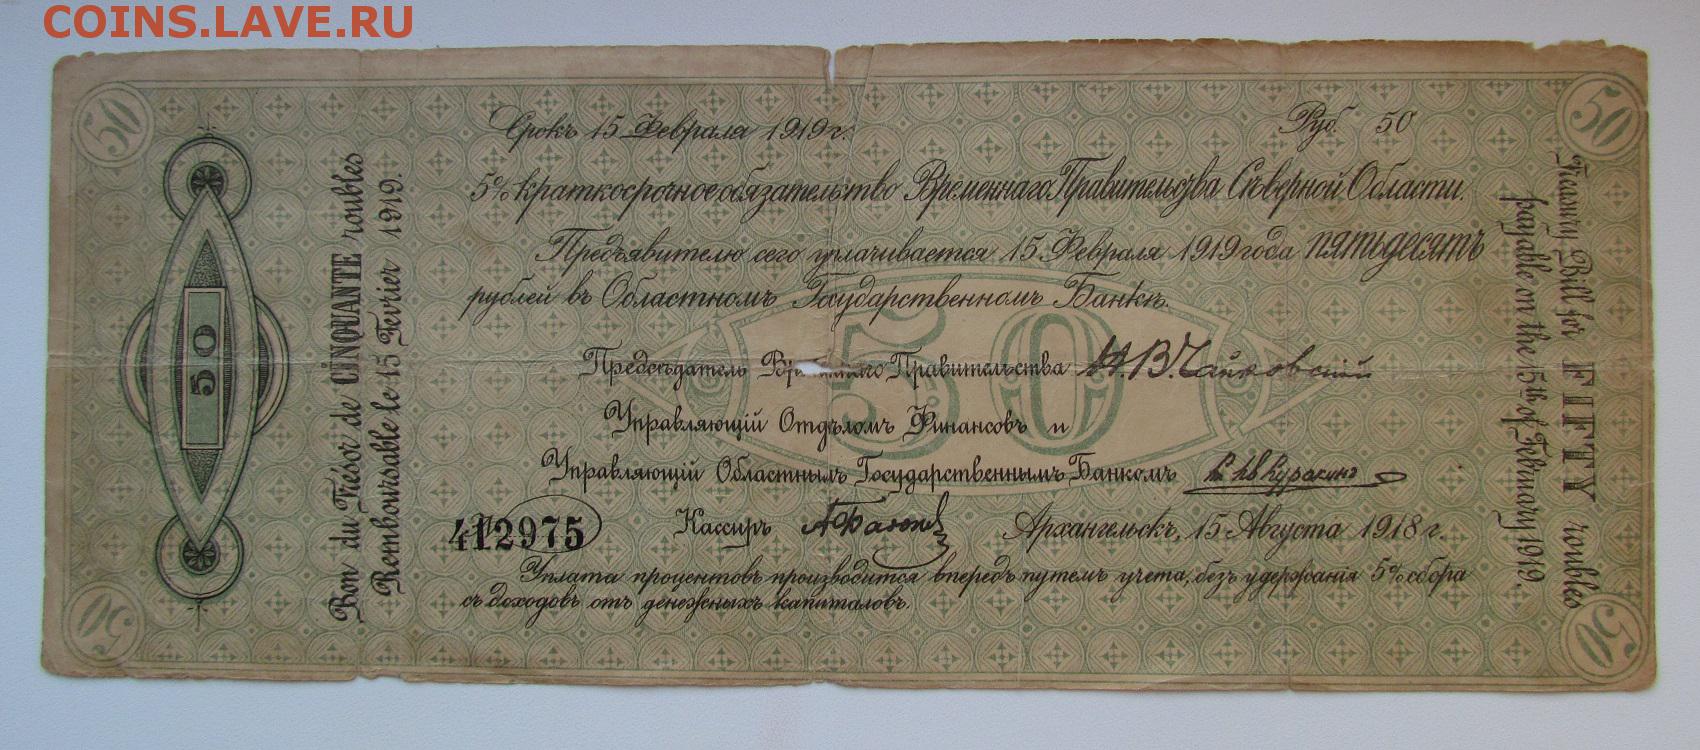 COINS.LAVE.RU
50
50
Срокъ 15 Февраля 1919 г.
Руб. 50
5% краткосрочное обязательство Временнаго Правительства Сѣверной Области.
Предъявителю сего уплачивается 15 Февраля 1919 года пятьдесятъ
рублей въ Областномъ Государственномъ Банкѣ.
50
50
Предсѣдатель Временнаго Правительства Н.В.Чайковскій
Управляющій Отдѣломъ Финансовъ и
Управляющій Областнымъ Государственнымъ Банкомъ
412975
Кассиръ
Архангельскъ, 15 Августа 1918 г.
Уплата процентовъ производится впередъ путемъ учета, безъ удержанія 5% сбора
съ доходовъ отъ денежныхъ капиталовъ.
Bon du Trésor de CINQUANTE roubles
Remboursable le 15 Fevrier 1919.
Treasury Bill for FIFTY roubles
payable on the 15th of February 1919.
50
50